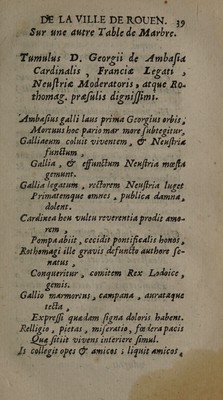 DE LA VILLE DE ROUEN. 39
Sur une autre Table de Marbre.
Tumulus D. Georgii de Ambasia
Cardinalis, Franciæ Legati,
Neustriæ Moderatoris, atque Ro-
thomag. præsulis dignissimi.
Ambasius galli laus prima Georgius orbis,
Mortuus hoc pario mar more subtegitur,
Galliaeum coluit viventem, & Neustria
functum,
Gallia, & effunctum Neustria mœsta
gemunt.
Gallia legatum, rectorem Neustria luget
Primatemque omnes, publica damna,
dolent.
Cardinea heu vultu reverentia prodit amo-
rem,
Pompa abiit, cecidit pontificalis honos,
Rothomagi ille gravis defuncto authore se-
natus
Conqueritur, comitem Rex Lodoice,
gemis.
Gallio marmoreus, campana, aurataque
tecta,
Expressi quædam signa doloris habent.
Relligio, pietas, miseratio, fœdera pacis
Quæ sitit vivens interiere simul.
Is collegit opes & amicos; liquit amicos,